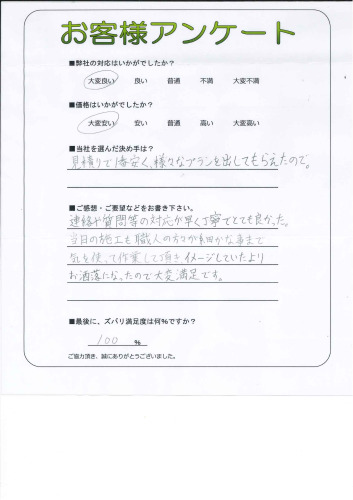 お客様アンケート
■弊社の対応はいかがでしたか?
大変良い 良い 普通 不満 大変不満
■価格はいかがでしたか?
大変安い 安い 普通 高い 大変高い
■当社を選んだ決め手は?
見積りで1番安く、様々なプランを出してもらえたので。
■ご感想・ご要望などをお書き下さい。
連絡や質問等の対応が早く丁寧でとても良かった。
当日の施工も職人の方々が細かな事まで
気を使って作業して頂きイメージしていたより
お洒落になったので大変満足です。
■最後に、ズバリ満足度は何%ですか?
100 %
ご協力頂き、誠にありがとうございました。